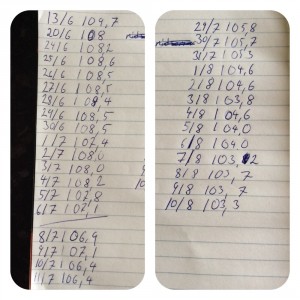 13/6 109,7
20/6 108
24/6 108,2
25/6 108,6
26/6 108,5
27/6 108,5
28/6 108,4
29/6 108,5
30/6 108,5
1/7 107,4
2/7 108,0
3/7 108,0
4/7 108,2
5/7 107,8
6/7 107,1
8/7 106,9
9/7 107,1
10/7 106,4
11/7 106,4
29/7 105,8
30/7 105,7
31/7 105,5
1/8 104,6
2/8 104,6
3/8 103,8
4/8 104,6
5/8 104,0
6/8 104,0
7/8 103,2
8/8 103,7
9/8 103,7
10/8 103,3